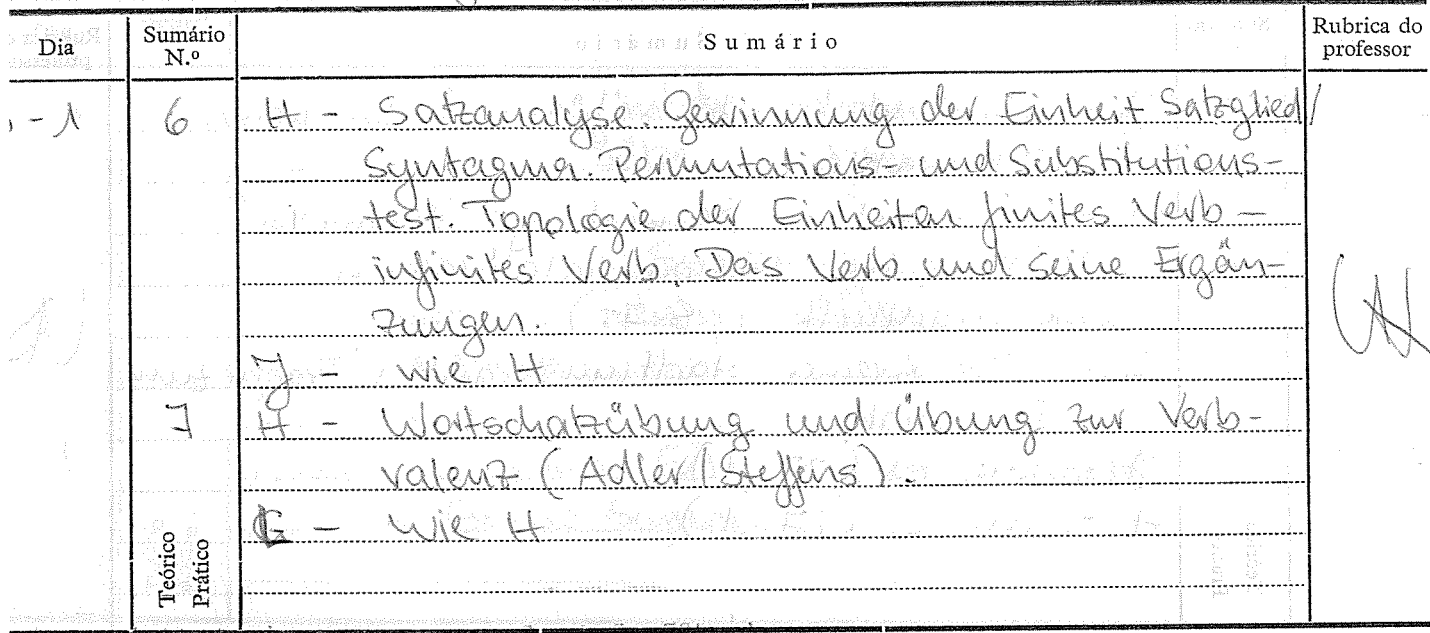 Dia Sumário N.º Sumário Rubrica do professor
-1 6 H - Satzanalyse. Gewinnung der Einheit Satzglied/
Syntagma. Permutations- und Substitutions-
test. Topologie der Einheiten finites Verb -
infinites Verb. Das Verb und seine Ergän-
zungen.
J - wie H
7 H - Wortschatzübung und Übung zur Verb-
valenz (Adler/Steffens).
G - wie H
Teórico
Prático